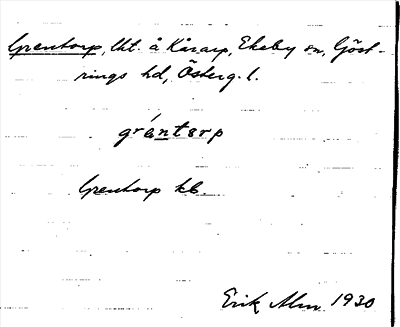 Grentorp, lht. å Kårarp, Ekeby sn, Göst-
rings hd, Österg. l.
gréntorp
Grentorp kb.
Erik Alm 1930